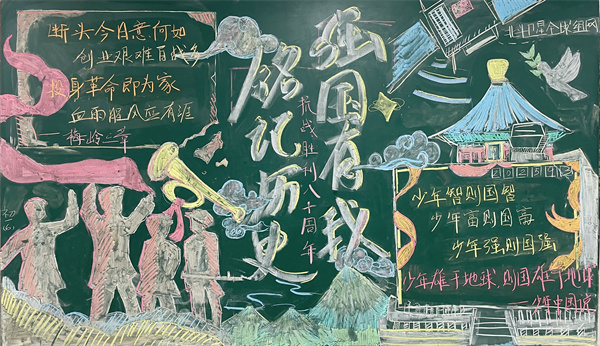 断头今日意何如
创业艰难百战多
投身革命即为家
血雨腥风应有涯
——梅岭三章
强国有我
铭记历史
抗战胜利八十周年
少年智则国智
少年富则国富
少年强则国强
少年雄于地球,则国雄于地球
——少年中国说